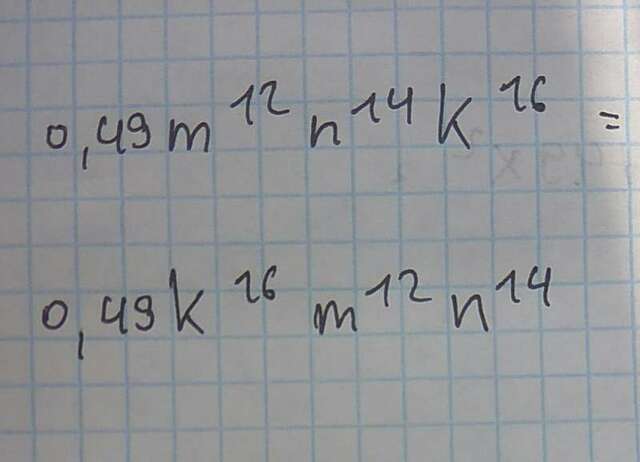 0,49m¹²n¹⁴k¹⁶ =
0,49k¹⁶m¹²n¹⁴